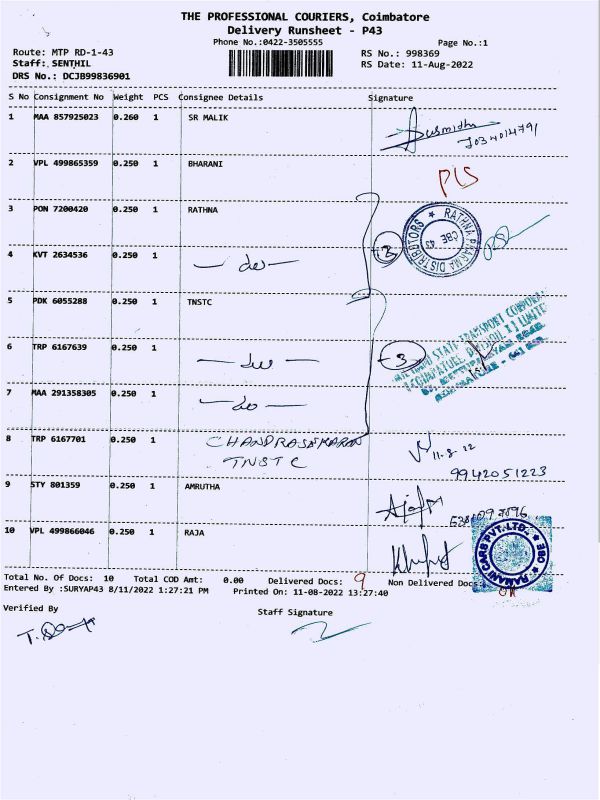 THE PROFESSIONAL COURIERS, Coimbatore
Delivery Runsheet - P43
Phone No.:0422-3505555 Page No.:1
Route: MTP RD-1-43 RS No.: 998369
Staff: SENTHIL RS Date: 11-Aug-2022
DRS No.: DCJB99836901
S No Consignment No Weight PCS Consignee Details Signature
1 MAA 857925023 0.260 1 SR MALIK
2 VPL 499865359 0.250 1 BHARANI
3 PON 7200420 0.250 1 RATHNA
RATHNA PHARMA DISTRIBUTORS CBE 43
4 KVT 2634536 0.250 1 — do — 2
5 PDK 6055288 0.250 1 TNSTC
6 TRP 6167639 0.250 1 — do — 3
7 MAA 291358305 0.250 1 — do —
8 TRP 6167701 0.250 1 CHANDRASEKARAN
TNSTC
11-8-22
9942051223
9 STY 801359 0.250 1 AMRUTHA
10 VPL 499866046 0.250 1 RAJA
RAMANI CARS PVT. LTD.
Total No. Of Docs: 10 Total COD Amt: 0.00 Delivered Docs: 9 Non Delivered Docs:
Entered By :SURYAP43 8/11/2022 1:27:21 PM Printed On: 11-08-2022 13:27:40
Verified By Staff Signature